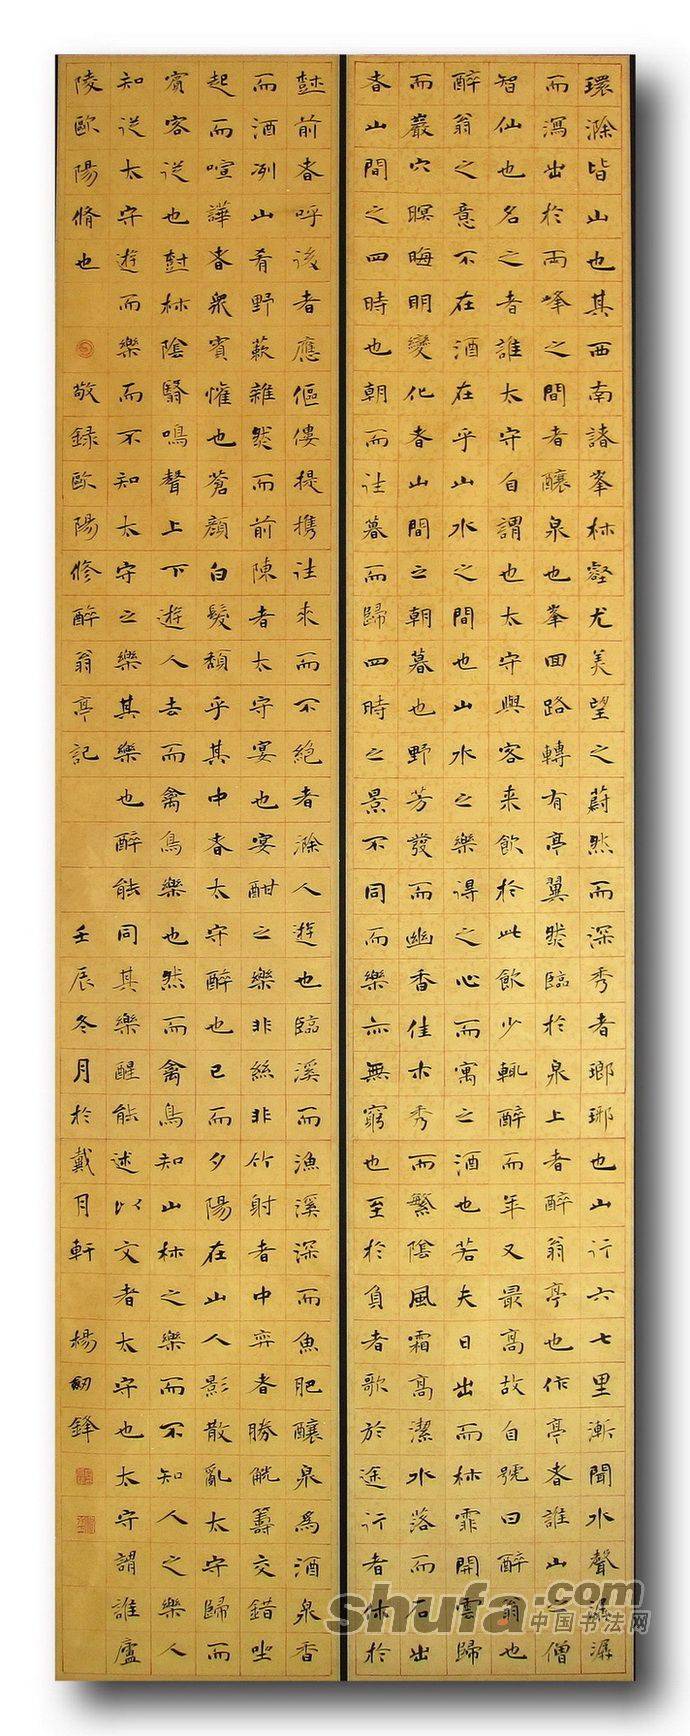 環滁皆山也其西南諸峯林壑尤美望之蔚然而深秀者瑯琊也山行六七里漸聞水聲潺潺
而瀉出於兩峰之間者釀泉也峯回路轉有亭翼然臨於泉上者醉翁亭也作亭者誰山之僧
智仙也名之者誰太守自謂也太守與客来飲於此飲少輒醉而年又最高故自號曰醉翁也
醉翁之意不在酒在乎山水之間也山水之樂得之心而寓之酒也若夫日出而林霏開雲歸
而巖穴暝晦明變化者山間之朝暮也野芳發而幽香佳木秀而繁陰風霜高潔水落而石出
者山間之四時也朝而往暮而歸四時之景不同而樂亦無窮也至於負者歌於途行者休於
樹前者呼後者應傴僂提携往來而不絕者滁人遊也臨溪而漁溪深而魚肥釀泉為酒泉香
而酒冽山肴野蔌雜然而前陳者太守宴也宴酣之樂非絲非竹射者中弈者勝觥籌交錯坐
起而喧譁者衆賓懽也蒼顔白髮頹乎其中者太守醉也已而夕陽在山人影散亂太守歸而
賓客從也樹林陰翳鳴聲上下遊人去而禽鳥樂也然而禽鳥知山林之樂而不知人之樂人
知從太守遊而樂而不知太守之樂其樂也醉能同其樂醒能述以文者太守也太守謂誰廬
陵歐陽脩也 敬録歐陽修醉翁亭記 壬辰冬月於戴月軒 楊劒鋒
shufa.com
中国书法网